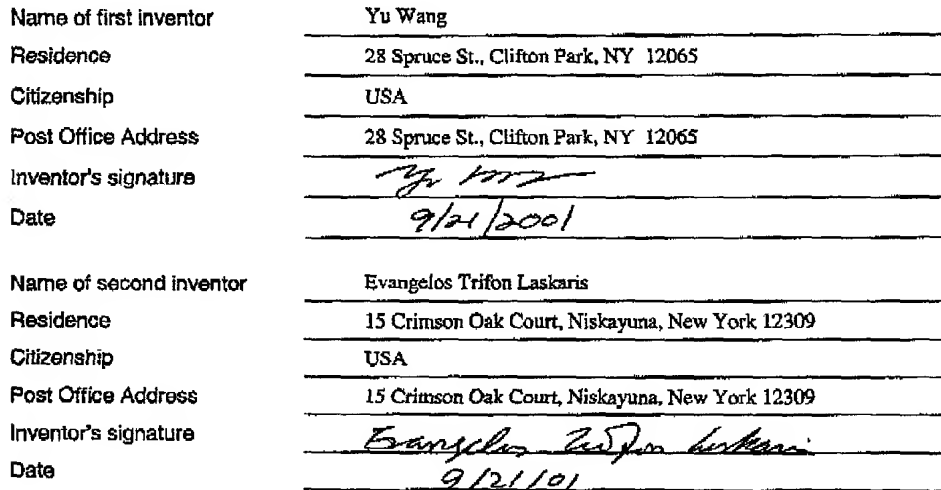 Name of first inventor Yu Wang
Residence 28 Spruce St., Clifton Park, NY 12065
Citizenship USA
Post Office Address 28 Spruce St., Clifton Park, NY 12065
Inventor's signature Yu Wang
Date 9/21/2001
Name of second inventor Evangelos Trifon Laskaris
Residence 15 Crimson Oak Court, Niskayuna, New York 12309
Citizenship USA
Post Office Address 15 Crimson Oak Court, Niskayuna, New York 12309
Inventor's signature Evangelos Trifon Laskaris
Date 9/21/01